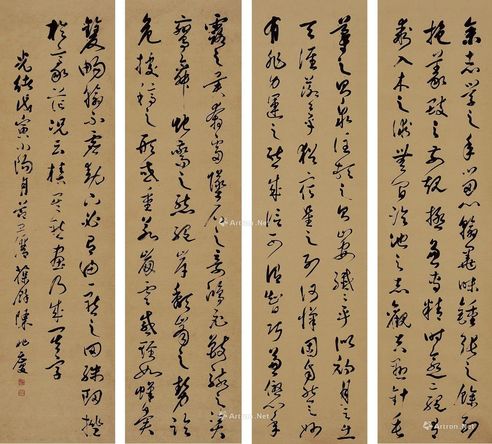 余志學之年留心翰墨味鍾張之餘烈
挹羲獻之前規極慮專精時逾二紀有
乖入木之術無間臨池之志觀夫懸針垂
導之則泉注頓之則山安纖纖乎似初月之出
天涯落落乎猶眾星之列河漢同自然之妙
有非力運之能成信可謂智巧兼優心手
露之異奔雷墜石之奇鴻飛獸駭之資
鸞舞蛇驚之態絕岸頹峰之勢臨
危據槁之形或重若崩雲或輕如蟬翼
雙暢翰不虛動下必有由一點之內殊衄挫
於豪芒況云積其點畫乃成其字
光緒戊寅小陽月 葆餘陳兆慶
Artron.Net
Artron.Net
Artron.Net
Artron.Net